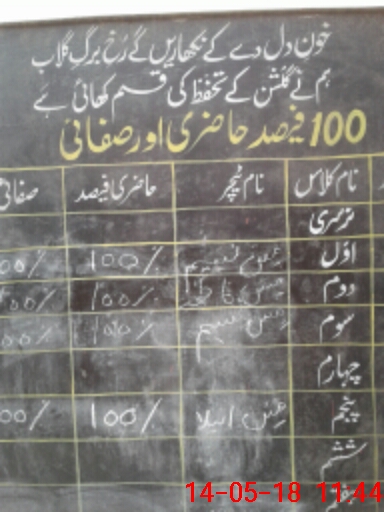 خونِ دل دے کے نکھاریں گے رُخِ برگِ گلاب
ہم نے گلشن کے تحفظ کی قسم کھائی ہے
100 فیصد حاضری اور صفائی
نام کلاس نام ٹیچر حاضری فیصد صفائی
نرسری
اوّل 100% 00%
دوم 100% 00%
سوم مس نسیم 100% 00%
چہارم
پنجم مس انیلا 100% 00%
ششم
14-05-18 11:44